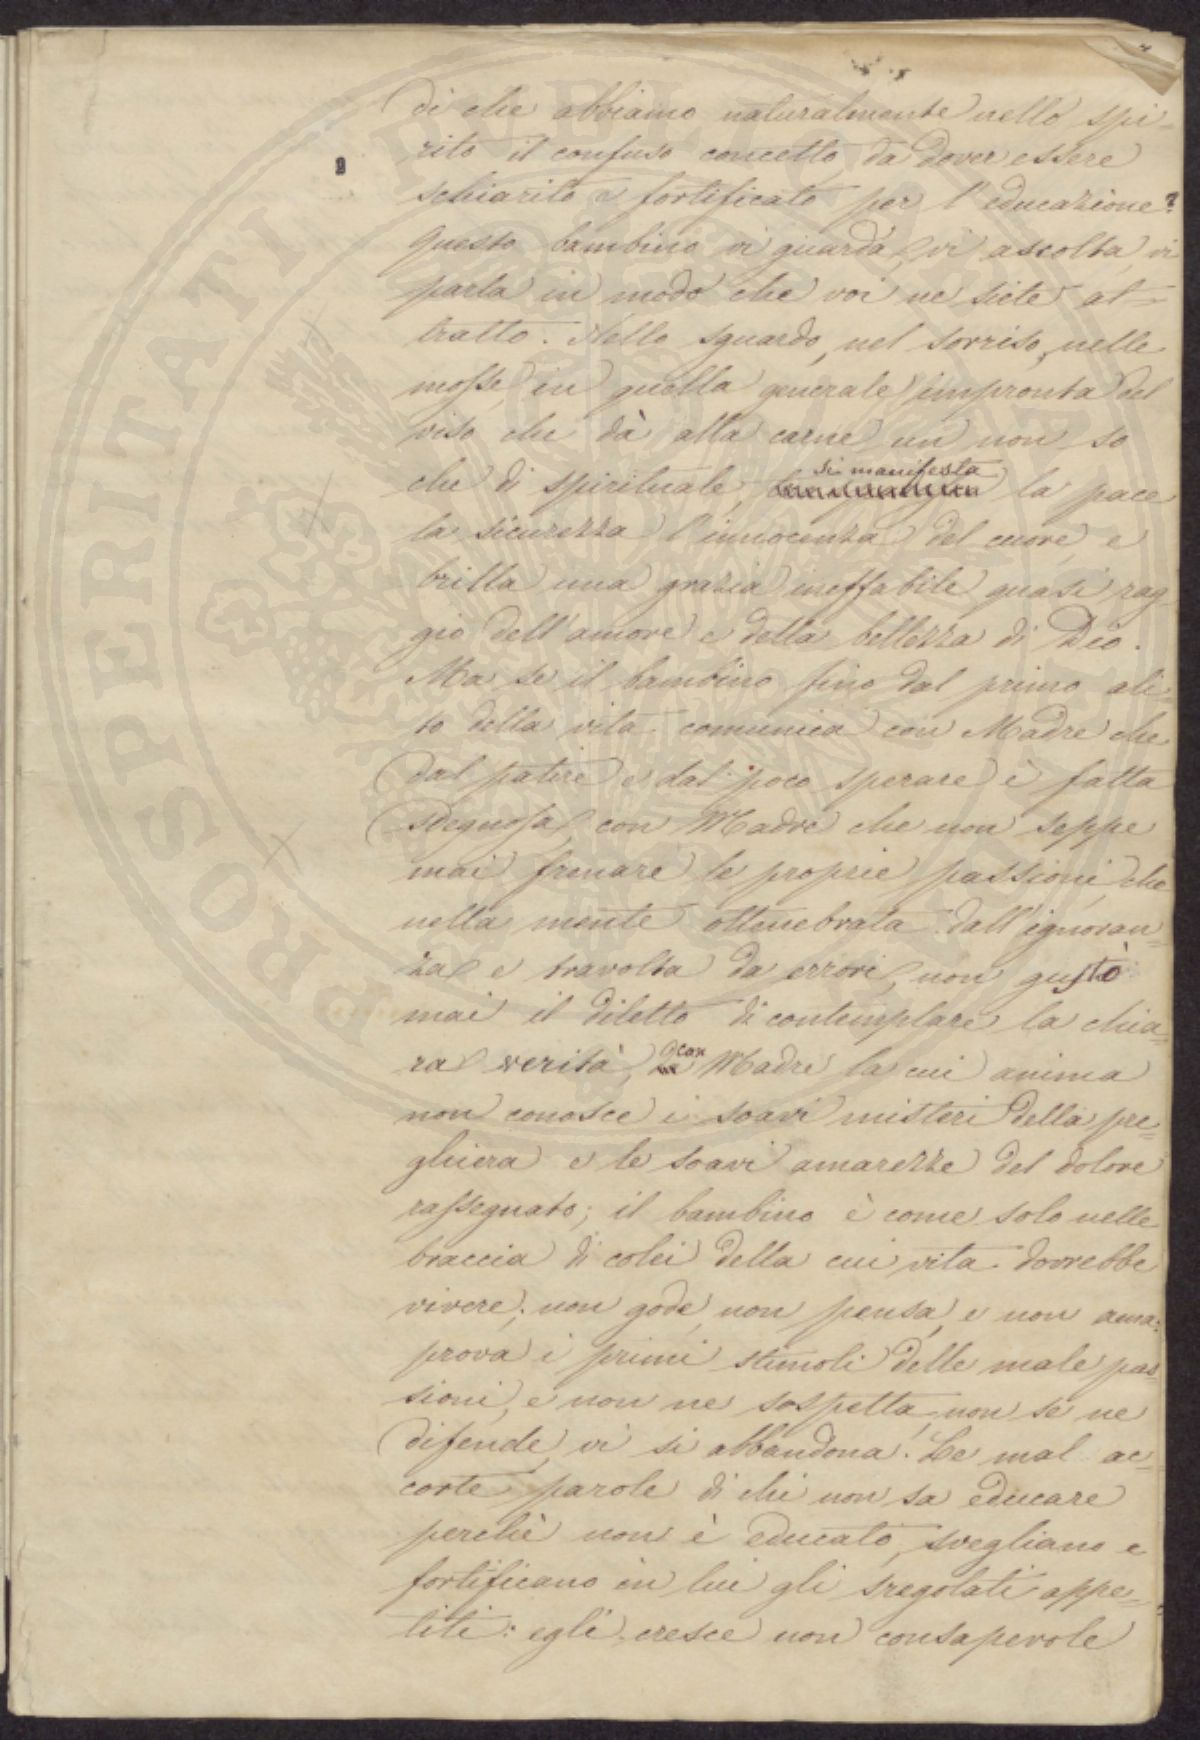 di che abbiamo naturalmente nello spi-
rito il confuso concetto, da dover essere
schiarito e fortificato per l'educazione?
Questo bambino vi guarda, vi ascolta, vi
parla in modo che voi ne siete at-
tratto. Nello sguardo, nel sorriso, nelle
mosse, in quella generale impronta del
viso che dà alla carne un non so
che di spirituale, si manifesta la pace
la sicurezza l'innocenza del cuore, e
brilla una grazia ineffabile quasi rag-
gio dell'amore e della bellezza di Dio.
Ma se il bambino fino dal primo ali-
to della vita comunica con Madre che
dal patire e dal poco sperare è fatta
sdegnosa, con Madre che non seppe
mai frenare le proprie passioni, che
nella mente ottenebrata dall'ignoran-
za e travolta da errori, non gustò
mai il diletto di contemplare la chia-
ra verità, con Madre la cui anima
non conosce i soavi misteri della pre-
ghiera e le soavi amarezze del dolore
rassegnato; il bambino è come solo nelle
braccia di colei della cui vita dovrebbe
vivere; non gode, non pensa, e non ama:
prova i primi stimoli delle male pas-
sioni, e non ne sospetta, non se ne
difende, vi si abbandona. Le mal ac-
corte parole di chi non sa educare
perchè non è educato, svegliano e
fortificano in lui gli sregolati appe-
titi: egli cresce non consapevole
PROSPERITATI PVBLICAE